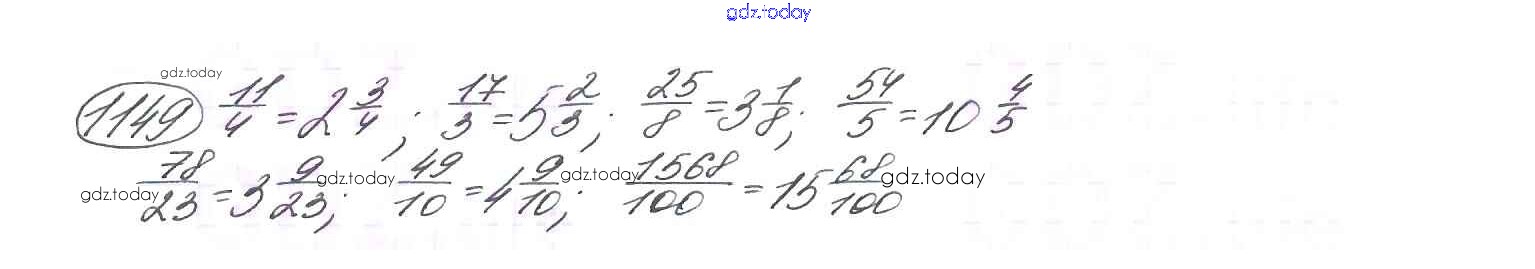 gdz.today
gdz.today
1149 11/4 = 2 3/4; 17/3 = 5 2/3; 25/8 = 3 1/8; 54/5 = 10 4/5
gdz.today 78/23 = 3 9/23; gdz.today 49/10 = 4 9/10; gdz.today 1568/100 = 15 68/100 gdz.today